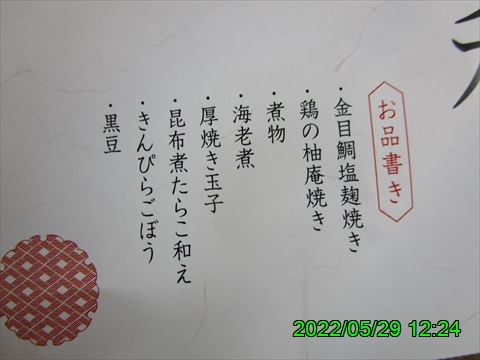 お品書き
・金目鯛塩麹焼き
・鶏の柚庵焼き
・煮物
・海老煮
・厚焼き玉子
・昆布煮たらこ和え
・きんぴらごぼう
・黒豆
2022/05/29 12:24